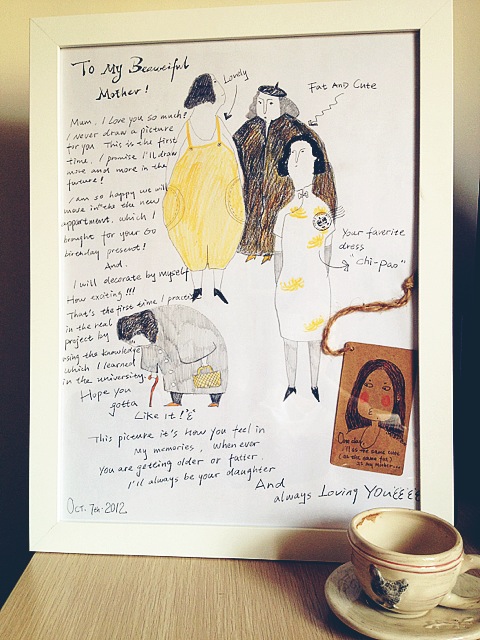 To My Beaueiful
Mother!
Mum, I Love you so much!
I never draw a picture
for you. This is the first
time. I promise I'll draw
more and more in the
future!
I am so happy we will
move in the the new
appartment, which I
brought for your 60
birthday present!
And.
I will decorate by myself
How exciting!!!
That's the first time I practice
in the real
project by
using the knowledge
which I learned
in the university.
Hope you
gotta
Like it!
This picture it's how you feel in
my memories, when ever
you are getting older or fatter.
I'll always be your daughter
And
always Loving YOU
Oct. 7th. 2012
Lovely
Fat And Cute
Your favorite
dress
"Chi-pao"
One day,
I'll as the same cute
(as the same fat)
as my mother...